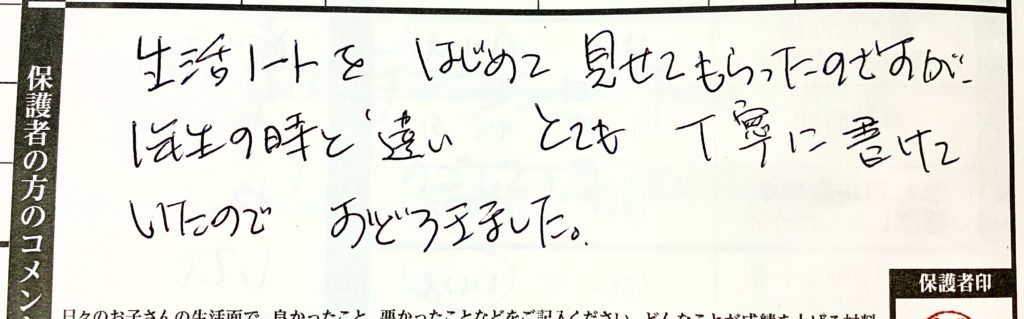 保護者の方のコメン
生活ノートを はじめて 見せてもらったのですが、
1年生の時と違い とても 丁寧に書けて
いたので おどろきました。
保護者印
日々のお子さんの生活面で、良かったこと、悪かったことなどをご記入ください。どんなことが成績を上げる材料